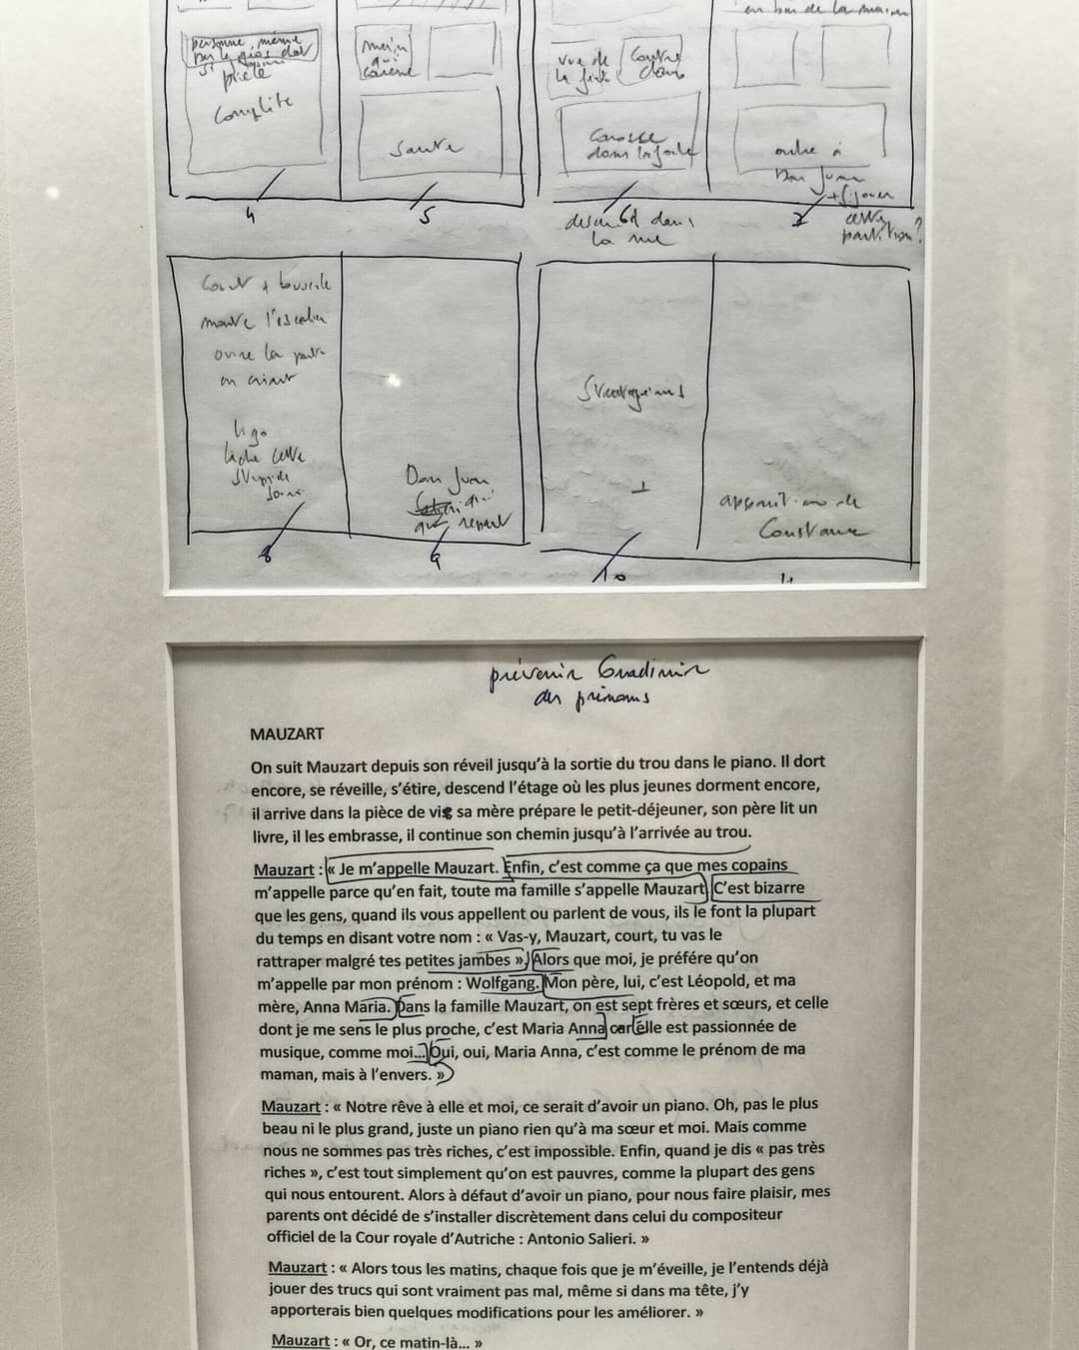 en bas de la maison
personne, même
pas le gros chat
si
pièce
complète
main
qui
caresse
saute
vue de
la
contre
dans
carosse
dans la foule
ouvre à
Don Juan
+ jouer
cette
partition?
4
5
6
descend dans
la rue
7
court + bouscule
monte l'escalier
ouvre la porte
en criant
Hugo
lâche cette
stupide
8
Don Juan
qui
repart
9
Stratagèmes
10
apparition de
Constance
11
prévenir Gradimir
des prénoms
MAUZART
On suit Mauzart depuis son réveil jusqu'à la sortie du trou dans le piano. Il dort
encore, se réveille, s'étire, descend l'étage où les plus jeunes dorment encore,
il arrive dans la pièce de vie sa mère prépare le petit-déjeuner, son père lit un
livre, il les embrasse, il continue son chemin jusqu'à l'arrivée au trou.
Mauzart : « Je m'appelle Mauzart. Enfin, c'est comme ça que mes copains
m'appelle parce qu'en fait, toute ma famille s'appelle Mauzart. C'est bizarre
que les gens, quand ils vous appellent ou parlent de vous, ils le font la plupart
du temps en disant votre nom : « Vas-y, Mauzart, court, tu vas le
rattraper malgré tes petites jambes ». Alors que moi, je préfére qu'on
m'appelle par mon prénom : Wolfgang. Mon père, lui, c'est Léopold, et ma
mère, Anna Maria. Dans la famille Mauzart, on est sept frères et sœurs, et celle
dont je me sens le plus proche, c'est Maria Anna car elle est passionnée de
musique, comme moi... Oui, oui, Maria Anna, c'est comme le prénom de ma
maman, mais à l'envers. »
Mauzart : « Notre rêve à elle et moi, ce serait d'avoir un piano. Oh, pas le plus
beau ni le plus grand, juste un piano rien qu'à ma sœur et moi. Mais comme
nous ne sommes pas très riches, c'est impossible. Enfin, quand je dis « pas très
riches », c'est tout simplement qu'on est pauvres, comme la plupart des gens
qui nous entourent. Alors à défaut d'avoir un piano, pour nous faire plaisir, mes
parents ont décidé de s'installer discrètement dans celui du compositeur
officiel de la Cour royale d'Autriche : Antonio Salieri. »
Mauzart : « Alors tous les matins, chaque fois que je m'éveille, je l'entends déjà
jouer des trucs qui sont vraiment pas mal, même si dans ma tête, j'y
apporterais bien quelques modifications pour les améliorer. »
Mauzart : « Or, ce matin-là... »